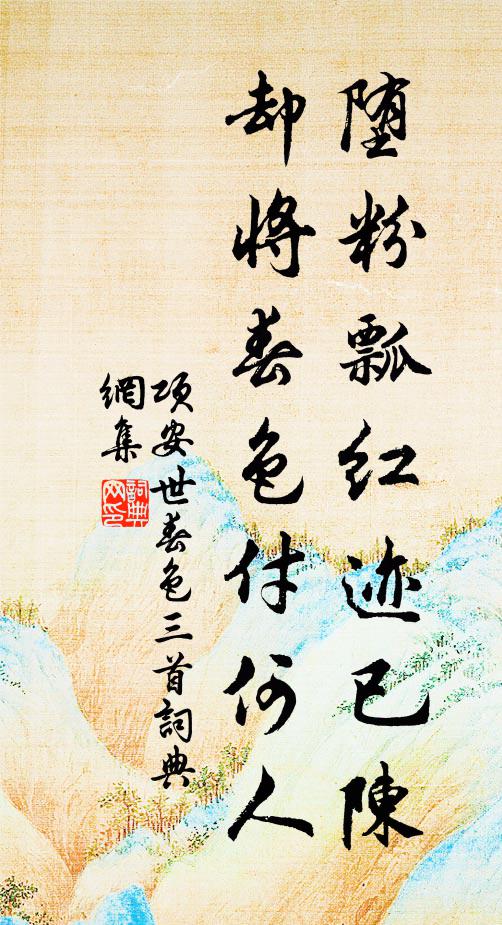 堕粉瓢红迹已陳
却將春色付何人
项安世春色三首詞典
網集
詞典
网印